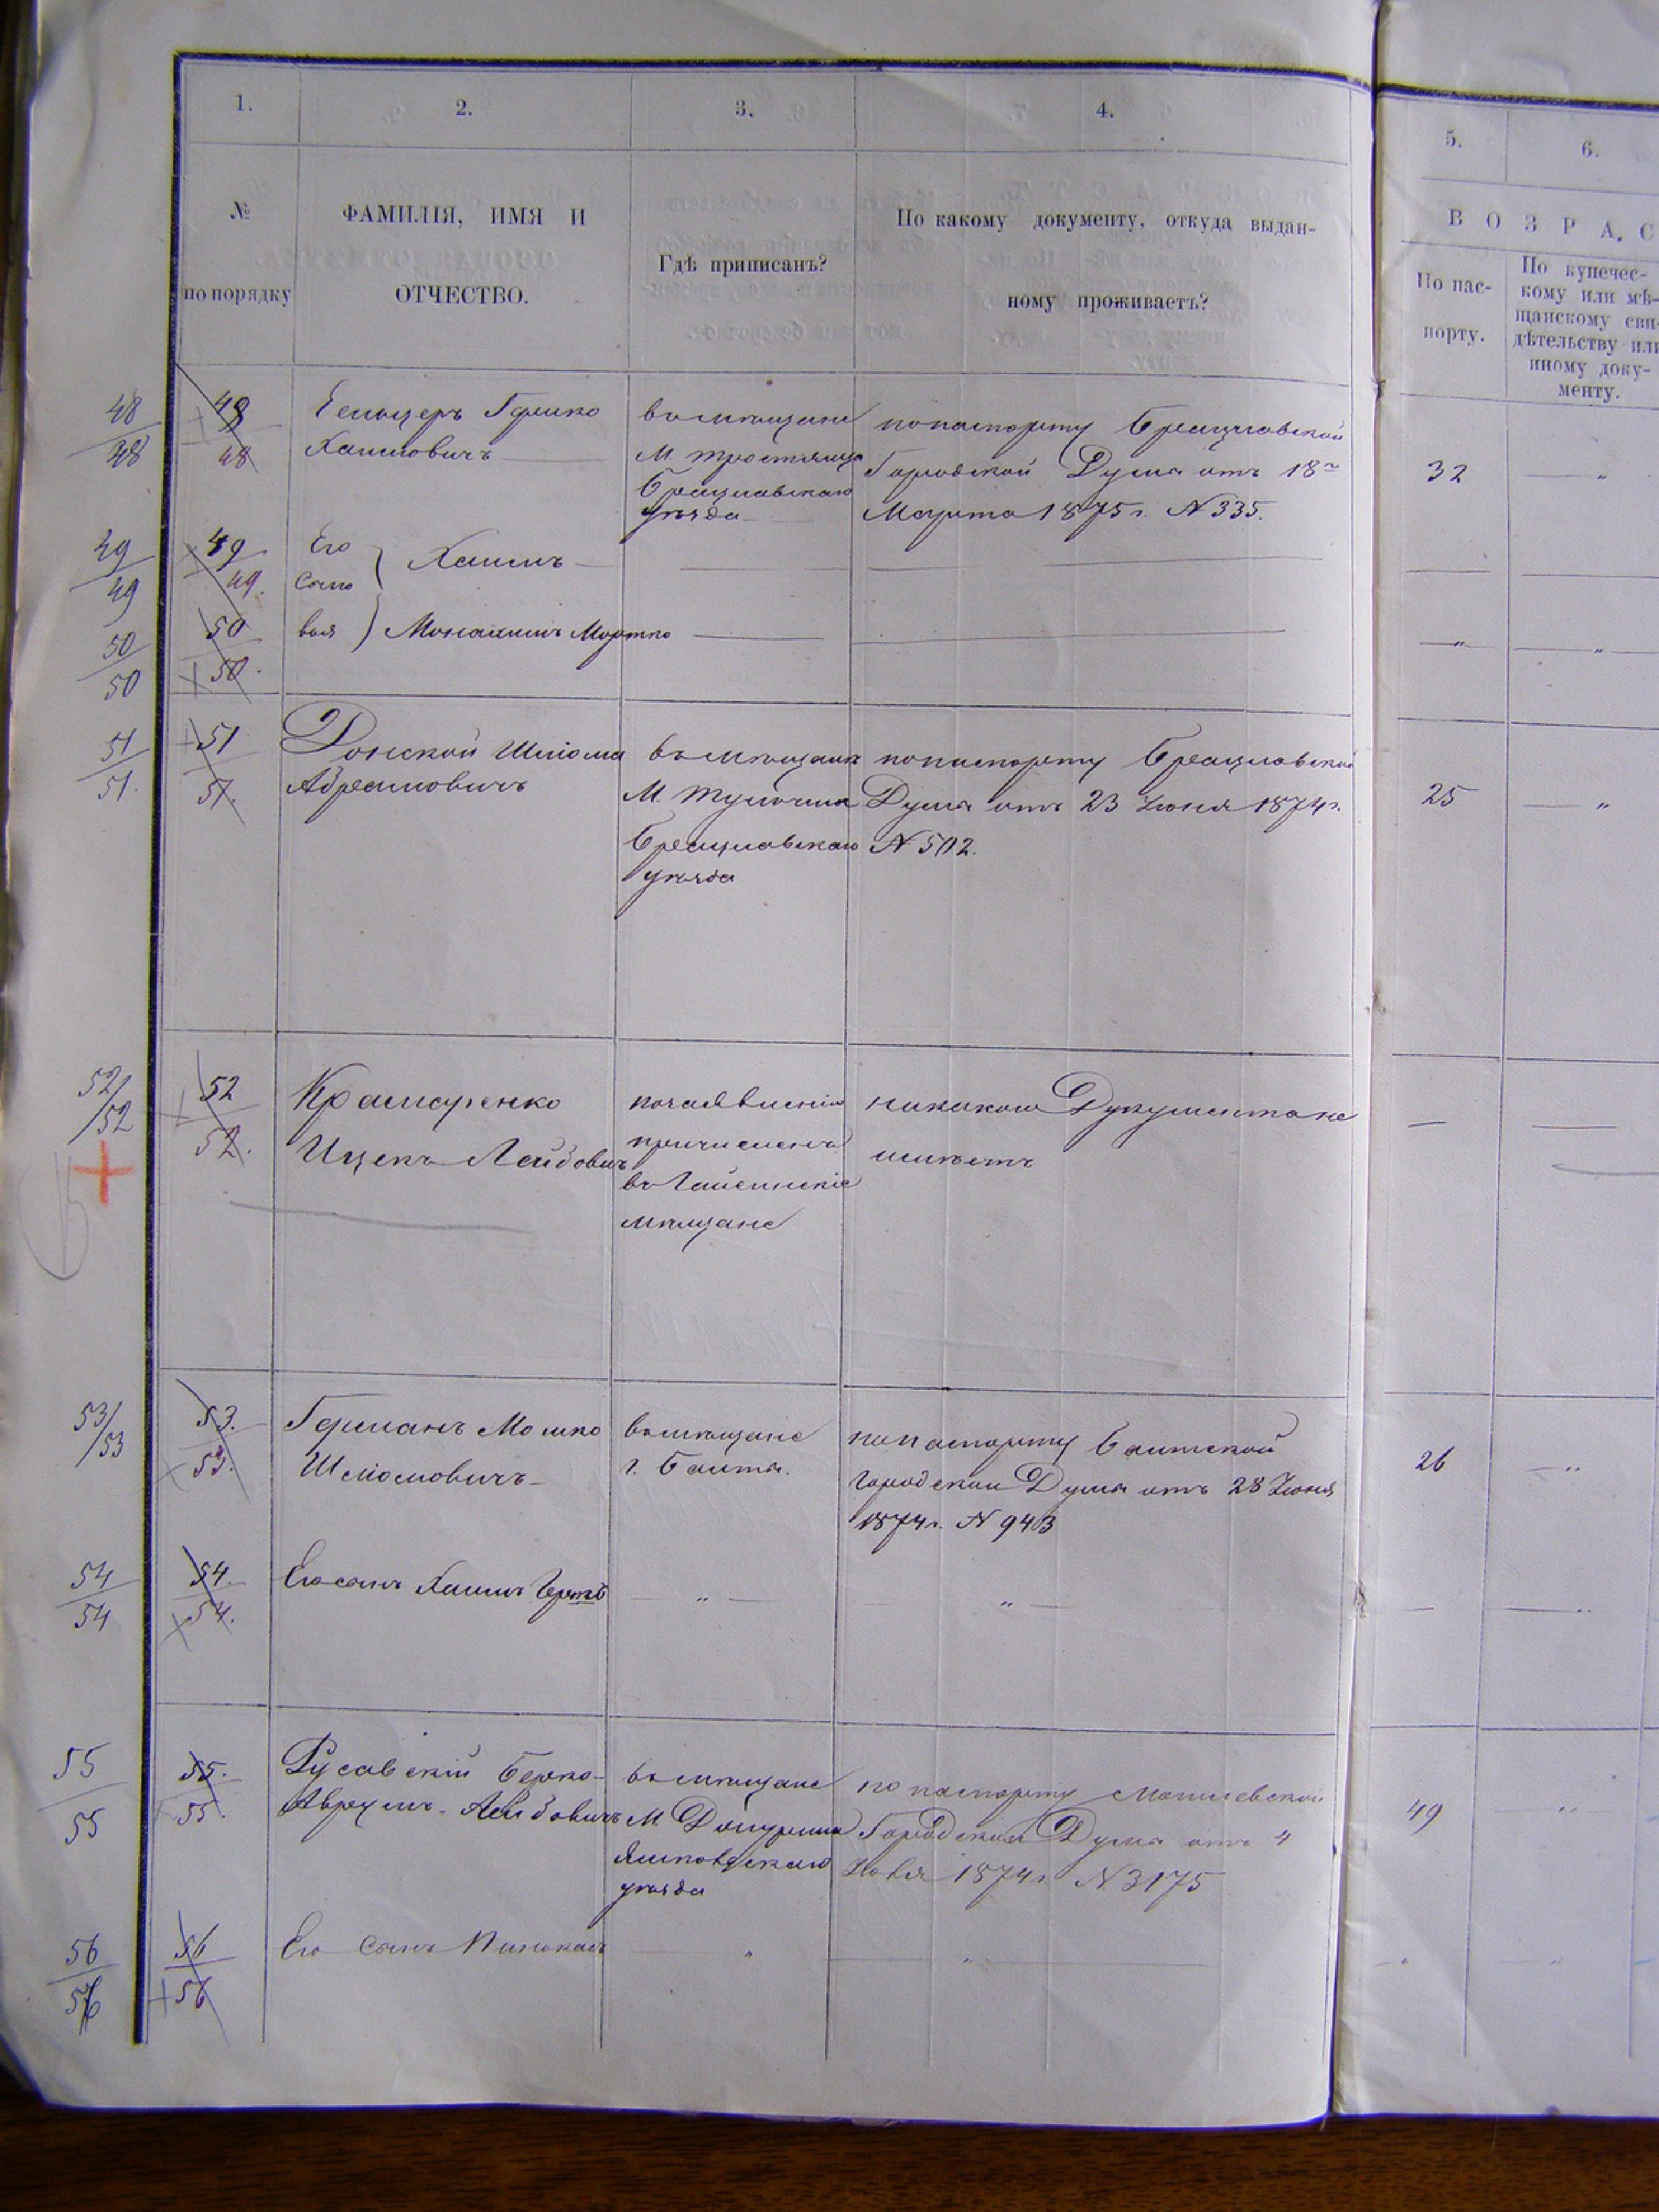 1.
2.
3.
4.
5.
6.
№
по порядку
ФАМИЛІЯ, ИМЯ И
ОТЧЕСТВО.
Гдѣ приписанъ?
По какому документу, откуда выдан-
ному проживаетъ?
ВОЗРАС
По пас-
порту.
По купечес-
кому или мѣ-
щанскому сви-
дѣтельству или
иному доку-
менту.
48
48
48
48
Гершко
Хаимовичъ
въ мѣщане
М. Тростянца
Брацлавскаго
уѣзда
по паспорту Брацлавской
Городской Думы отъ 18го
Марта 1875 г. N 335.
32
49
49
49
49.
Его
Сыно
Хаимъ
50
50
50
50.
вья
Монахимъ Мортко
51
51.
51
51.
Донской Шлiома
Абрамовичъ
въ мѣщане
М. Тульчина
Брацлавскаго
уѣзда
по паспорту Брацлавской
Думы отъ 23 Іюня 1874 г.
N 502.
25
52
52
52
52.
Крамаренко
Ицекъ Лейбовичъ
по заявленію
причисленъ
въ Гайсинскіе
мѣщане
никакого Документа не
имѣетъ
53
53
53.
53.
Германъ Мошко
Шлiомовичъ
въ мѣщане
г. Балты.
по паспорту Балтской
Городской Думы отъ 28 Іюня
1874 г. N 9403
26
54
54
54.
54.
Его сынъ Хаимъ
55
55
55.
55.
Русавскій Берко-
Аврумъ-Лейбовичъ
въ мѣщане
М.
Ямпольскаго
уѣзда
по паспорту
Городской Думы отъ 4
1874 г. N 3175
49
56
56
56
56
Его Сынъ